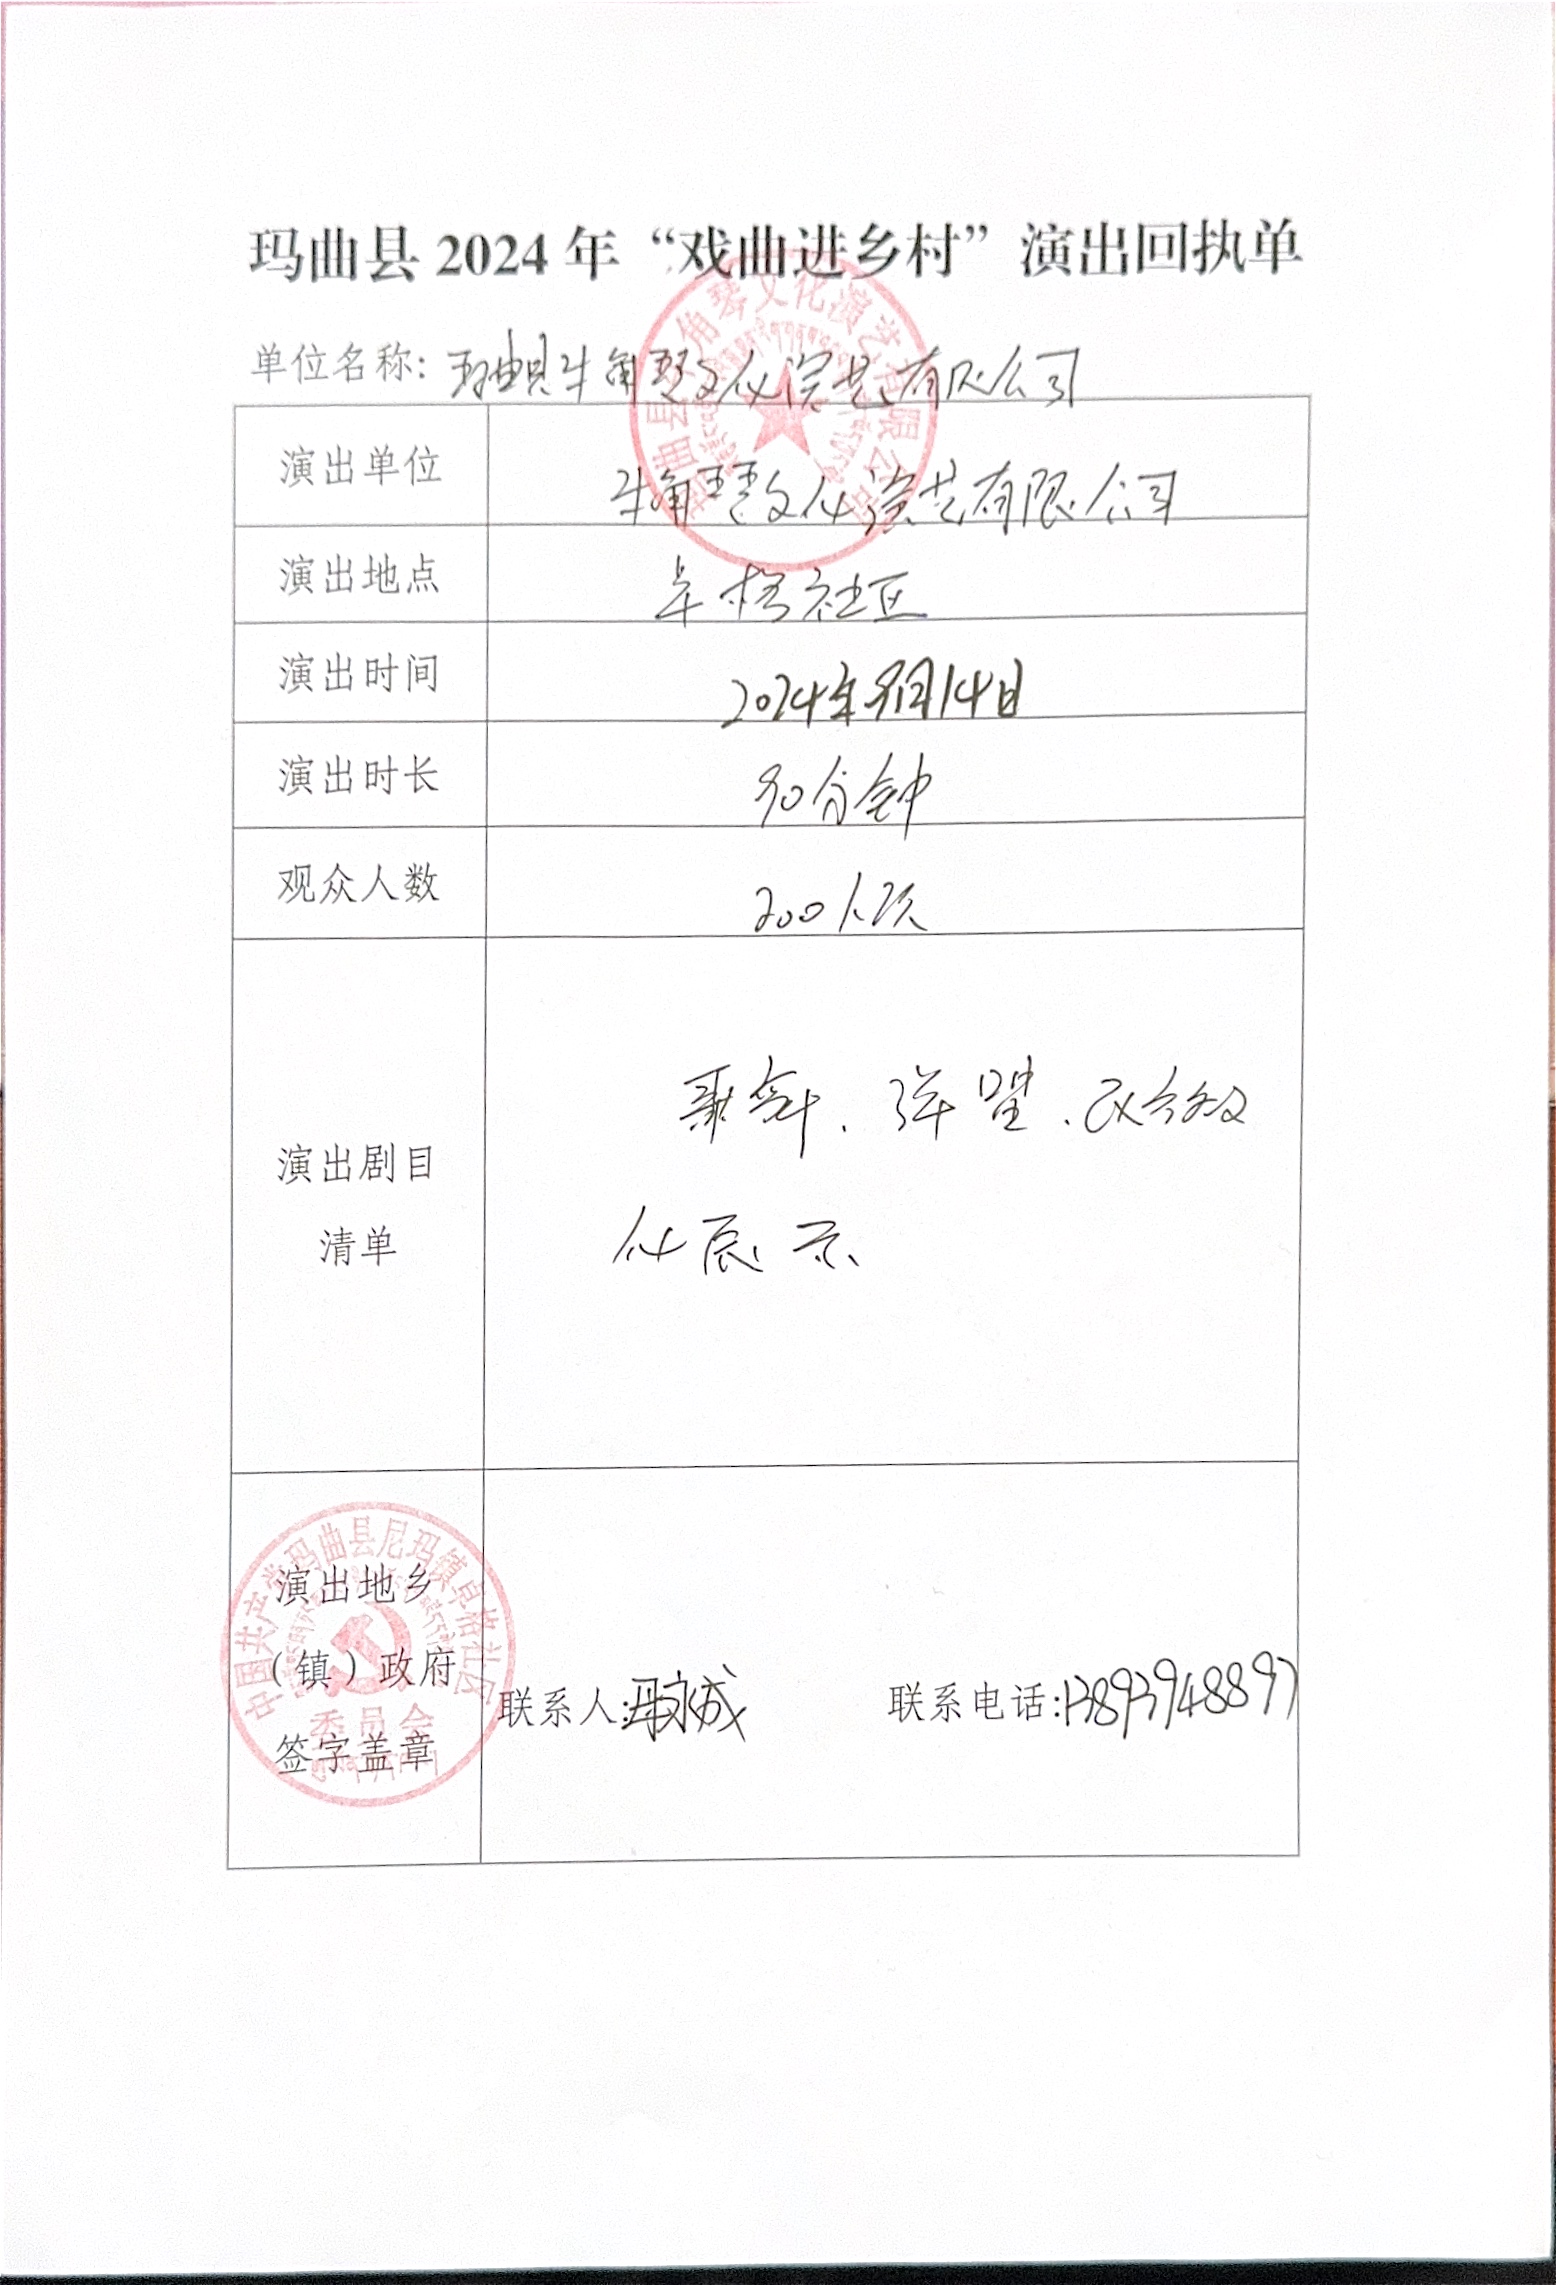 玛曲县2024年“戏曲进乡村”演出回执单
单位名称：玛曲县牛角琴文化演艺有限公司
演出单位 牛角琴文化演艺有限公司
演出地点 卓格社区
演出时间 2024年9月14日
演出时长 90分钟
观众人数 200人次
演出剧目
清单
歌舞、弹唱、民俗文
化展示
演出地乡
（镇）政府
签字盖章
联系人： 联系电话：13893948897
玛曲县牛角琴文化演艺有限公司
中国共产党玛曲县尼玛镇卓格社区
委员会